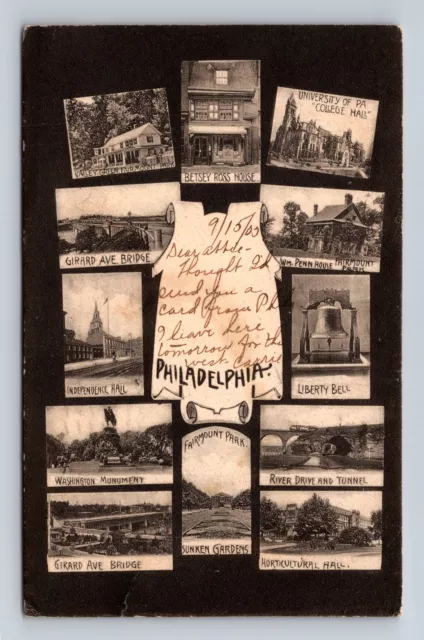 VALLEY GREEN FAIRMOUNT PARK
BETSEY ROSS HOUSE
UNIVERSITY OF PA
"COLLEGE HALL"
GIRARD AVE BRIDGE
WM. PENN HOUSE FAIRMOUNT PARK
9/15/05
Dear
thought I'd
send you a
card from Phil
I leave here
tomorrow for the
west
PHILADELPHIA.
INDEPENDENCE HALL
LIBERTY BELL
WASHINGTON MONUMENT
FAIRMOUNT PARK.
SUNKEN GARDENS
RIVER DRIVE AND TUNNEL
GIRARD AVE BRIDGE
HORTICULTURAL HALL.